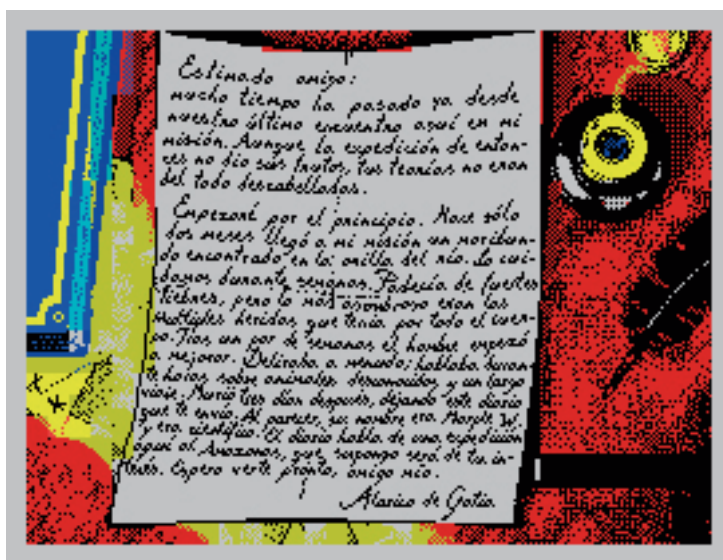 Estimado amigo:
mucho tiempo ha pasado ya desde
nuestro último encuentro aquí en mi
misión. Aunque la expedición de enton-
ces no dio sus frutos, tus teorías no eran
del todo descabelladas.
Empezaré por el principio. Hace sólo
dos meses llegó a mi misión un moribun-
do encontrado en la orilla del río. Lo cui-
damos durante semanas. Padecía de fuertes
fiebres, pero lo más asombroso eran las
múltiples heridas que tenía por todo el cuer-
po. Tras un par de semanas el hombre empezó
a mejorar. Deliraba a menudo; hablaba duran-
te horas sobre animales desconocidos y un largo
viaje. Murió tres días después, dejando este diario
que te envío. Al parecer, su nombre era Morple W.
y era científico. El diario habla de una expedición
aquí al Amazonas, que supongo será de tu in-
terés. Espero verte pronto, amigo mío.
Alarico de Gotia.